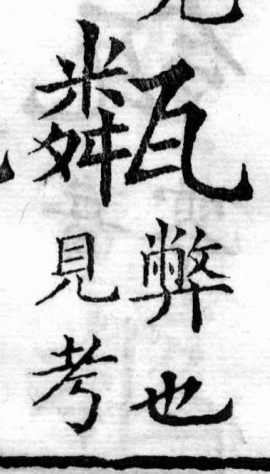 甐
弊也
見考